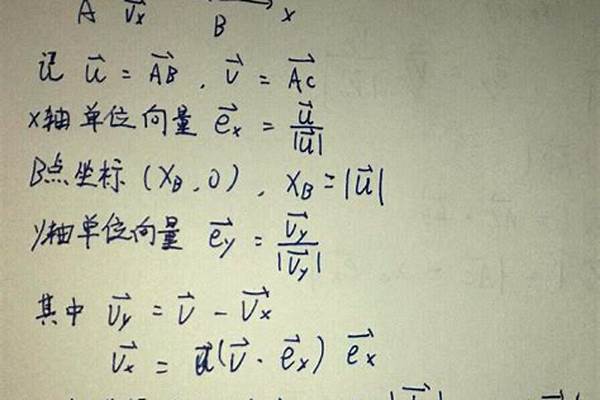 A v⃗ₓ B x
记 u⃗ = AB⃗ , v⃗ = AC⃗
x轴单位向量 e⃗ₓ = u⃗/|u⃗|
B点坐标 (X_B, 0), X_B = |u⃗|
y轴单位向量 e⃗_y = v⃗_y/|v⃗_y|
其中 v⃗_y = v⃗ - v⃗ₓ
v⃗ₓ = (v⃗ · e⃗ₓ) e⃗ₓ